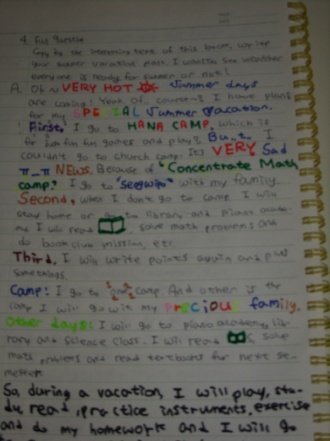 4. Fun Question
Copy the interesting part of this book, write
your summer vacation plan. I want to see whether
everyone is ready for summer or not!
A. Oh~ VERY HOT Summer days
are coming! Yeah. Of course, I have plans
for my SPECIAL Summer vacation.
First, I go to HANA CAMP, which is
for fun fun fun games and play! But, I
couldn't go to church camp. It's VERY Sad
π_π NEWS. Because of "Concentrate Math
camp." I go to "Seogwipo" with my family.
Second, when I don't go to camp. I will
stay home or go to library and piano acade-
me. I will read, solve math problems and
do book, mission, etc.
Third, I will write points again and plus
somethings.
Camp: I go to camp. And other is the
camp I will go with my Precious family.
Other days: I will go to piano academy, lib-
rary and science class. I will read, solve
math problems and read textbooks for next se-
mester.
So, during a vacation, I will play, stu-
dy, read, practice instruments, exercise
and do my homework and I will go